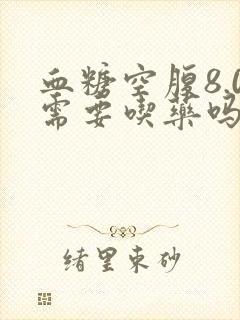 血糖空腹8.0
需要喫藥吗
绪里束砂